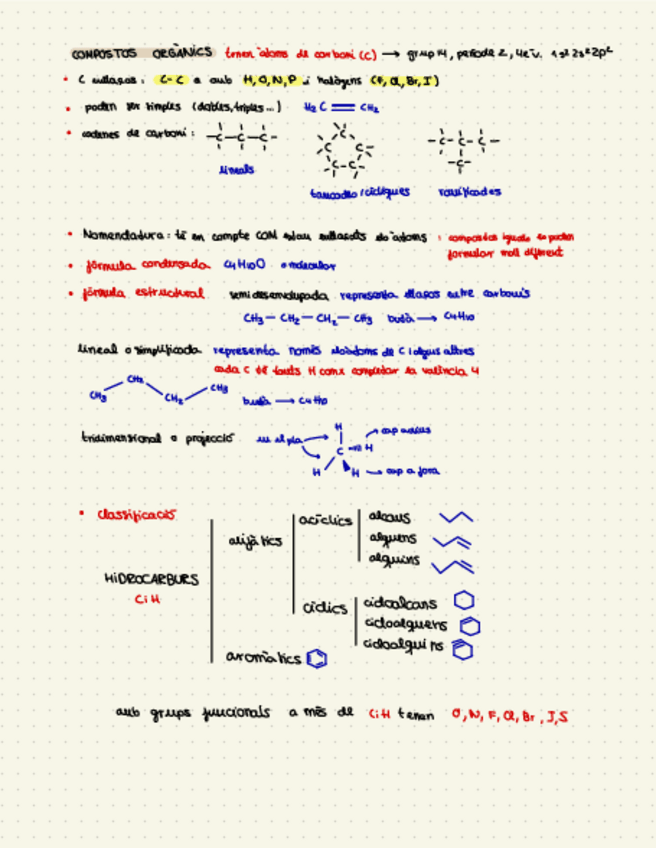 COMPOSTOS ORGÀNICS tenen àtoms de carboni (C) → grup 14, període 2, 4e⁻v. 1s² 2s² 2p²
• C enllaços: C-C o amb H,O,N,P i halògens (F, Cl, Br, I)
• poden ser simples (dobles, triples...) H₂C = CH₂
• cadenes de carboni: -C-C-C-
lineals
tancades/cícliques
ramificades
• Nomenclatura: té en compte COM estan enllaçats els àtoms : compostos iguals es poden
formular molt diferent
• fórmula condensada C₄H₁₀O o molecular
• fórmula estructural semidesenvolupada representa enllaços entre carbonis
CH₃ - CH₂ - CH₂ - CH₃ butà → C₄H₁₀
lineal o simplificada representa només els àtoms de C i algus altres
cada C té tants H com x completar la valència 4
CH₃ CH₂ CH₂ CH₃ butà → C₄H₁₀
tridimensional o projecció en el pla H C H H H cap a fora
• classificació
HIDROCARBURS
C i H
alifàtics
acíclics
alcans
alquens
alquins
cíclics
cicloalcans
cicloalquens
cicloalquins
aromàtics
amb grups funcionals a més de C i H tenen O, N, F, Cl, Br, I, S